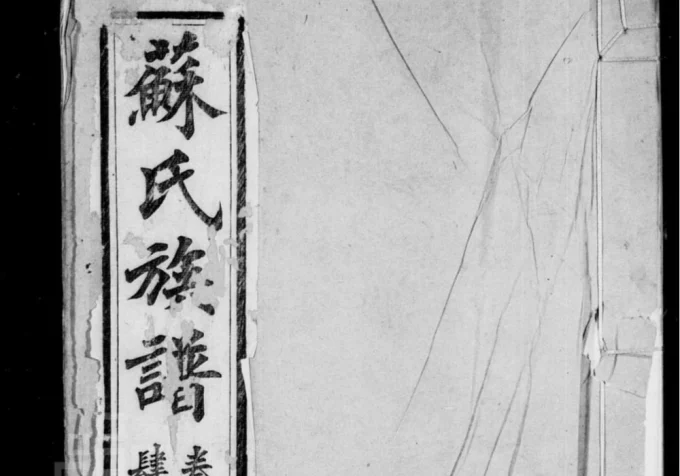 蘇氏族譜
卷
肆